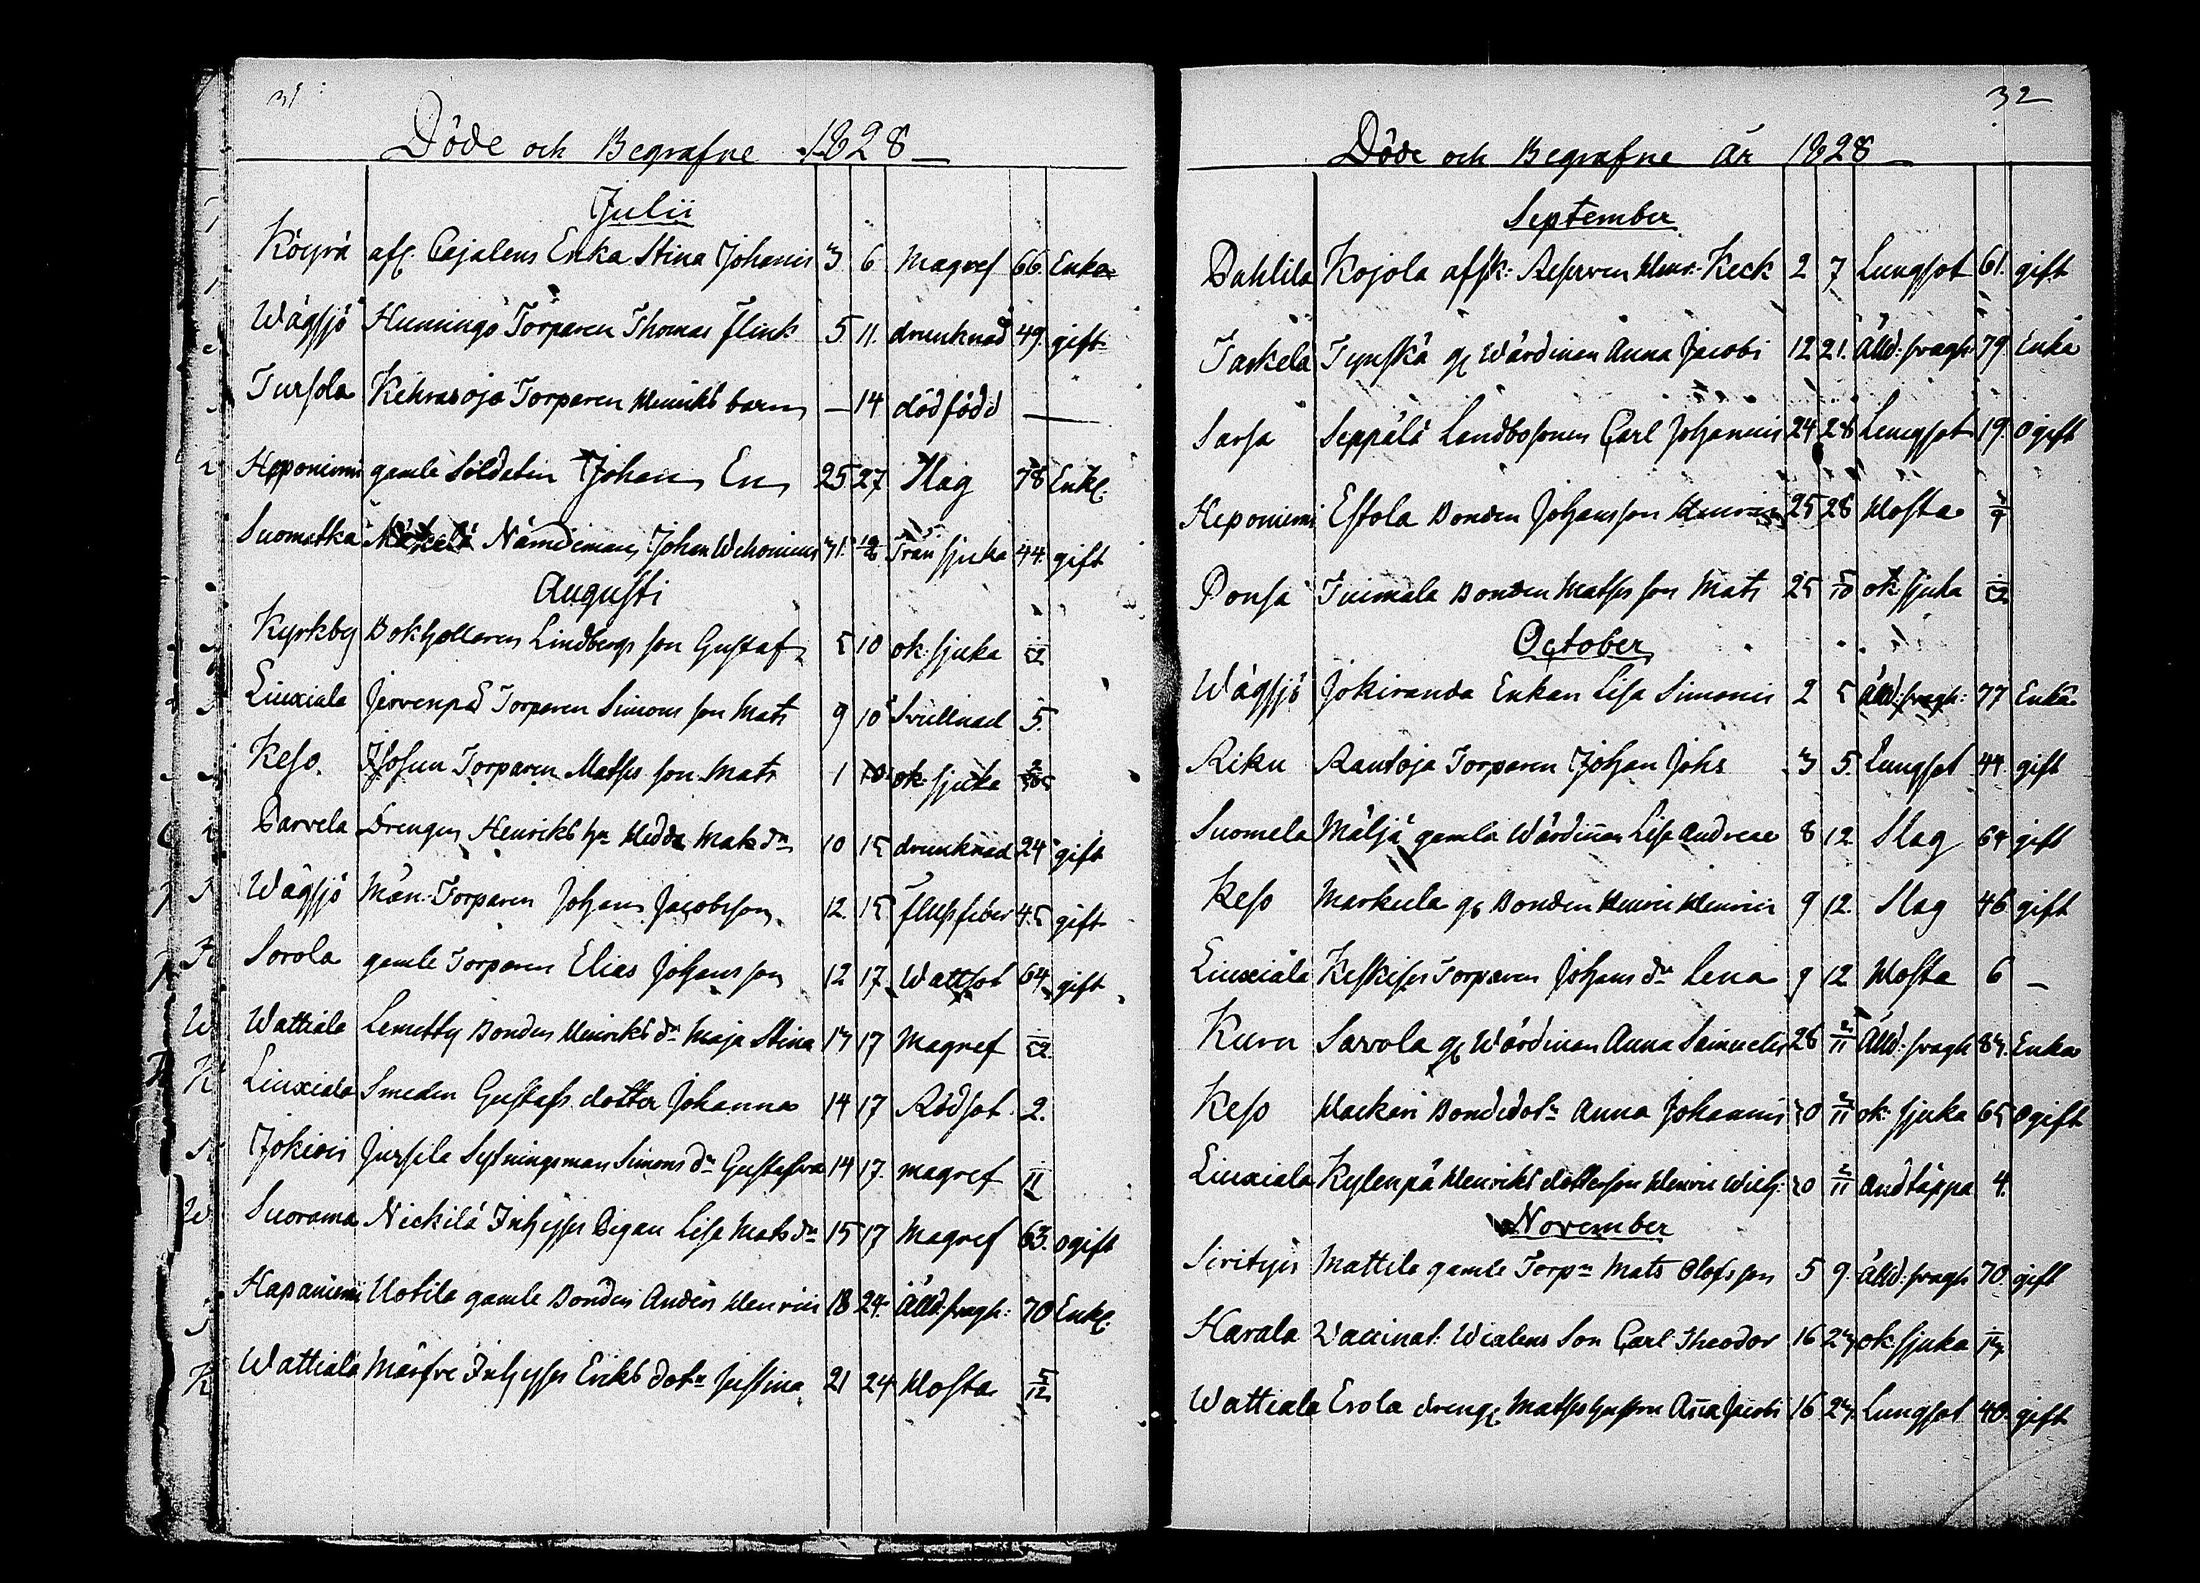 31
Döde och Begrafne 1828
Julii
Köyrä afl. Cajalens Enka Stina Johanis 3 6 Magref 66 Enka
Wågsjö Humingo Torparen Thomas Flink 5 11. drunknad 49. gift
Tursola Kehrasoja Torparen Henriks barn — 14 dödfödd —
Heponiemi gamle Soldaten Johan En 25 27 Slag 78 Enkl.
Suomatka Nämdeman Johan Wehonius 31. Trånsjuka 44. gift
Augusti
Kyrkby Bokhollaren Lindbergs son Gustaf 5 10 ok sjuka
Liuxiala Jervenpää Torparen Simons son Mats 9 10 Svullnad 5.
Keso. Torparen Matts son Mats 1 10 ok sjuka
Parvela Drengen Henriks hu Hedda Matsdr 10 15 drunknad 24 gift
Wågsjö Män Torparen Johan Jacobsson 12. 15 flussfeber 45 gift
Sorola gamle Torparen Elias Johansson 12 17. Wattsot 64. gift
Wattiala Lemetty Bonden Henriks dr Maja Stina 13 17 Magref 1/52
Liuxiala Smeden Gustafs dotter Johanna 14 17 Rödsot 2.
Jokiois Jussila Sytningsman Simons dr Gustafva 14 17. magref
Suorama Nickilä Inhyses Pigan Lisa Matsdr 15 17 Magref 63. ogift
Hapaniemi Uotila gamle Bonden Anders Henrici 18 24 Ålld:svagh: 70 Enkl.
Wattiala Märfve Inhyses Eriks dotr Justina 21 24 Hosta 5/12
32
Döde och Begrafne År 1828
September
Dahlila Kojola afsk: Reserven Henr. Keck 2 7 Lungsot 61. gift
Taskela Tynskä gl Wärdinan Anna Jacobi 12 21. Ålld:svagh 79. Enka
Sarsa Seppälä Landbosonen Carl Johannis 24 28 Lungsot 19. Ogift
Heponiemi Eskola Bonden Johans son Henric 25 28 Hosta
Ponsa Tuimala Bonden Matts son Mats 25 5/10 ok sjuka
October
Wågsjö Jokiranda Enkan Lisa Simonis 2 5 Ålld:svagh: 77 Enka
Riku Rautoja Torparen Johan Johs 3 5. Lungsot 44. gift
Suomela Mäljä gamla Wärdinan Lisa Andreae 8 12 Slag 64 gift
Keso Markula gl Bonden Henric Henrici 9 12. Slag 46 gift
Liuxiala Keskises Torparen Johans dr Lena 9 12 Hosta 6 —
Kuru Savola gl Wärdinan Anna Samuelis 28 2/11 Ålld:svagh 83. Enka
Keso Mackari Bondedotr Anna Johannis 30 2/11 ok: sjuka 65 Ogift
Liuxiala Kylenpä Henriks dotterson Henric Wilh: 30 2/11 andtäppa 4.
November
Mattila gamle Torpn Mats Olofsson 5 9. ålld:svagh 70. gift
Havala Vaccinat: Wealens Son Carl Theodor 16 23 ok: sjuka
Wattiala Erola drengl Matts hustru Anna Jacobi 16 23. Lungsot 40. gift